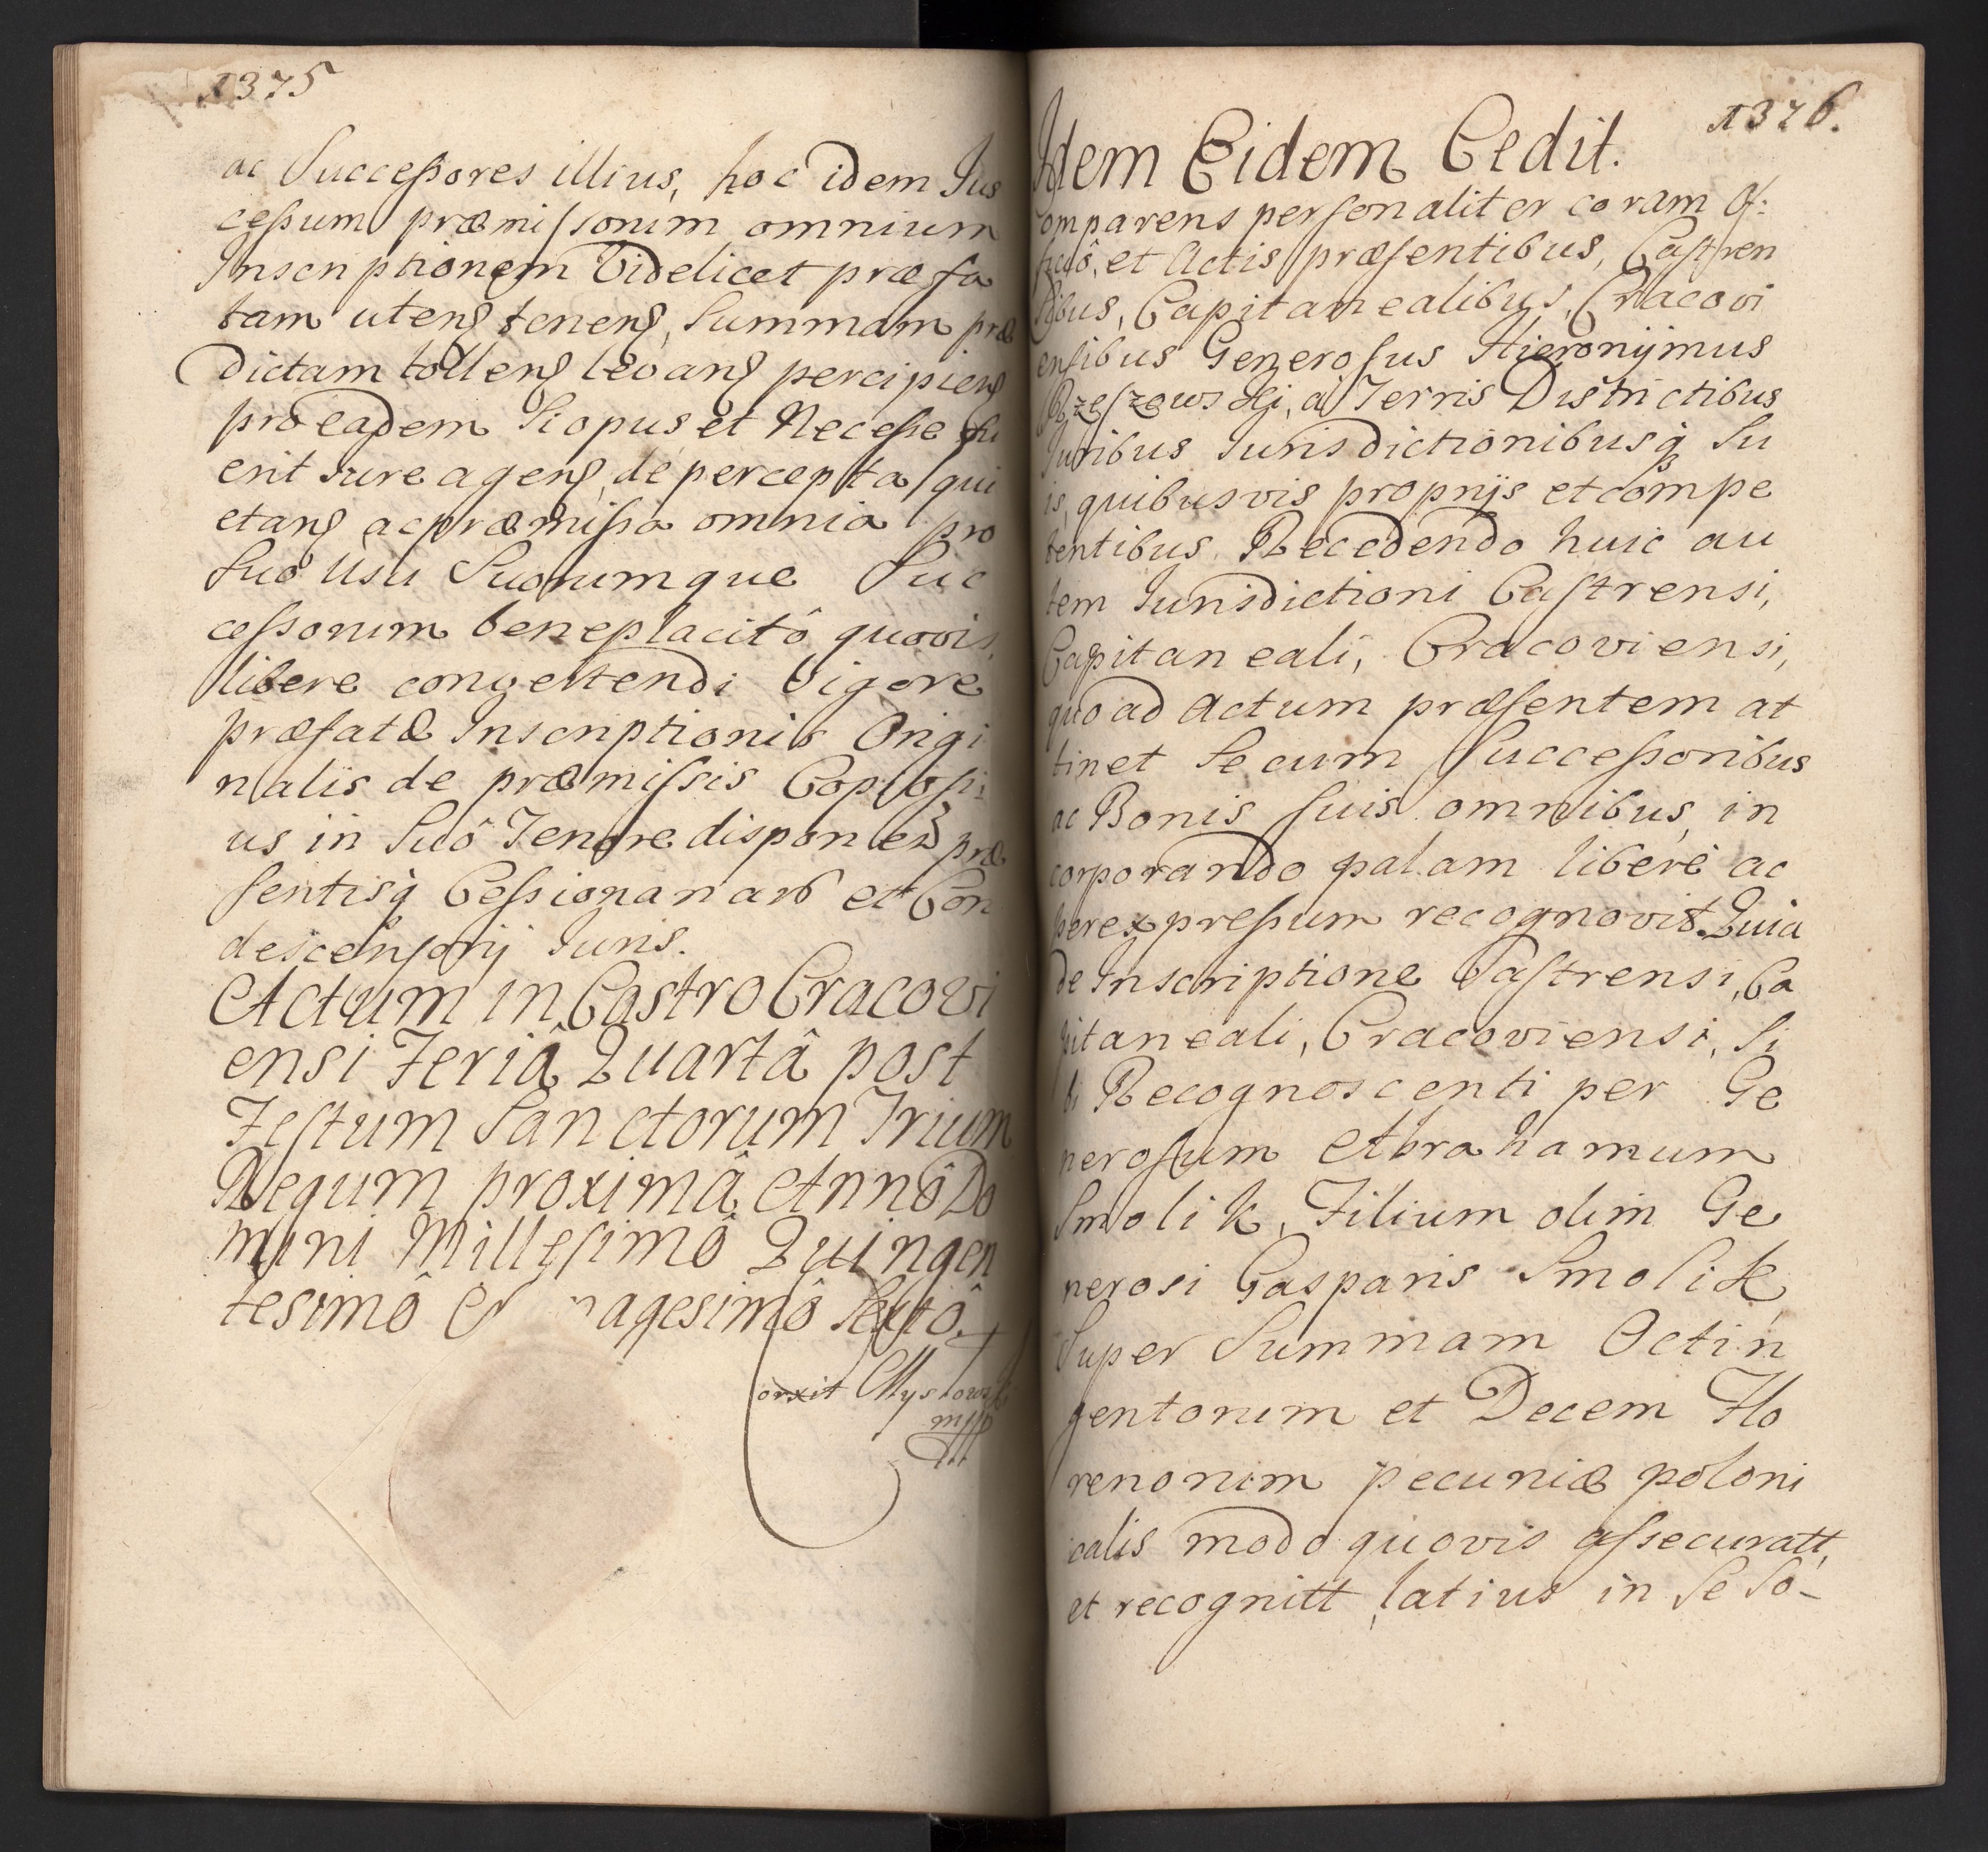 1375
ac Successores illius, hoc idem Jus
cessum præmissorum omnium
Inscriptionem Videlicet præfa
tam utens tenens, Summam præ
dictam tollens levans percipiens
pro eadem Si opus et Necesse fu
erit iure agens, de percepta qui
etans ac præmissa omnia pro
Suô Usu Suorumque Suc
cessorum beneplacitô quovis,
libere convertendi Vigore
præfatæ Inscriptionis Origi
nalis de præmissis Copiosi:
us in Suô Tenore disponen præ
sentisq Cessionarij et Con
descensorij Juris.
Actum in Castro Cracovi
ensi Feriâ Quartâ post
Festum Sanctorum Trium
Regum proximâ Annô Do
mini Millesimô Quingen
tesimô agesimô Sextô.
corrxit
mpp
1376.
Idem Eidem Cedit.
Comparens personaliter coram Of:
ficiô, et Actis præsentibus, Castren
sibus, Capitanealibus, Cracovi
ensibus Generosus Hieronÿmus
Rzeszowskj, à Terris Districtibus
Juribus Jurisdictionibusq Su
is, quibusvis proprijs et compe
tentibus Recedendo huic au
tem Jurisdictioni Castrensi,
Capitaneali, Cracoviensi,
quo ad Actum præsentem at
tinet Se cum Successoribus
ac Bonis suis omnibus, in
corporando palam liberè ac
per expressum recognovit. Quia
de Inscriptione Castrensi, Ca
pitaneali, Cracoviensi, Si
bi Recognoscenti per Ge
nerosum Abrahamum
Smolik, Filium olim Ge
nerosi Gasparis Smolik
Super Summam Octin
gentorum et Decem Flo
renorum pecuniæ poloni
calis modo quovis assecuratt,
et recognitt, latius in Se So-